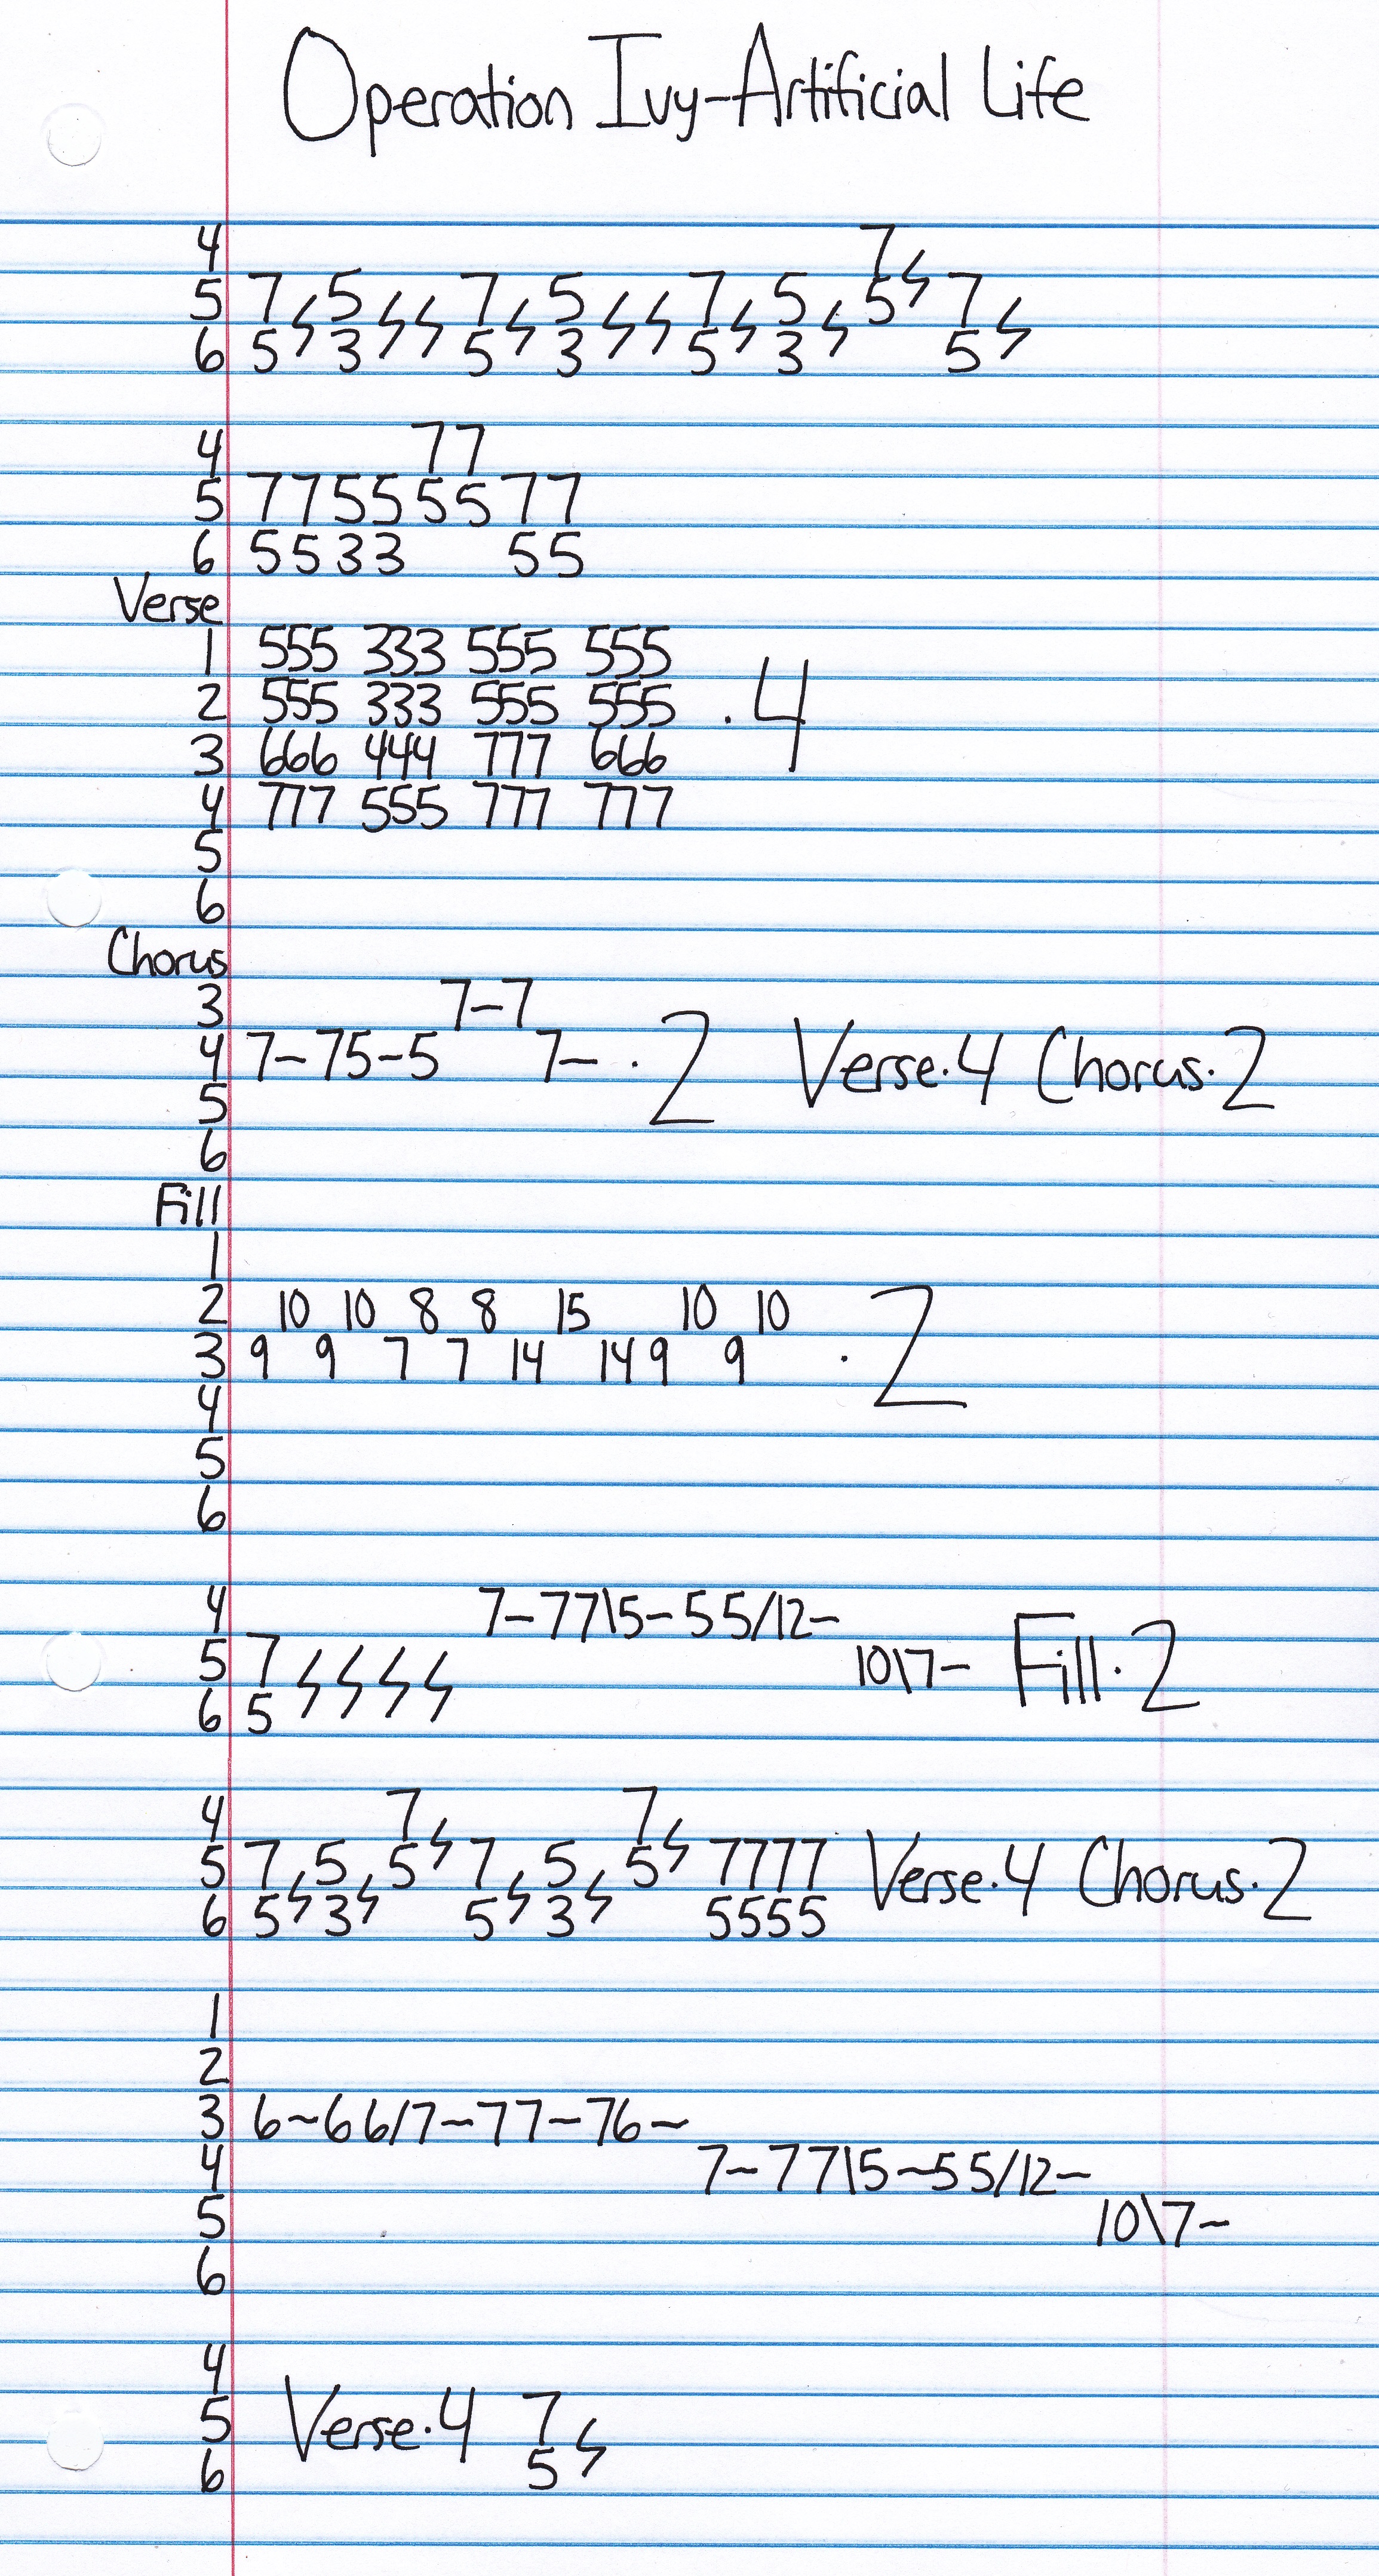 Operation Ivy-Artificial Life
4 7ϟ
5 7ϟ5ϟϟ7ϟ5ϟϟ7ϟ5ϟ5 7ϟ
6 5 3 5 3 5 3 5
4 77
5 77555577
6 5533 55
Verse
1 555 333 555 555
2 555 333 555 555 .4
3 666 444 777 666
4 777 555 777 777
5
6
Chorus
3 7-7
4 7-75-5 7- .2 Verse.4 Chorus.2
5
6
Fill
1
2 10 10 8 8 15 10 10
3 9 9 7 7 14 14 9 9 .2
4
5
6
4 7-77\5-55/12-
5 7ϟϟϟϟ 10\7- Fill.2
6 5
4 7ϟ 7ϟ
5 7ϟ5ϟ5 7ϟ5ϟ5 7777 Verse.4 Chorus.2
6 5 3 5 3 5555
1
2
3 6~66/7~77-76~
4 7-77\5~55/12-
5 10\7-
6
4
5 Verse.4 7ϟ
6 5